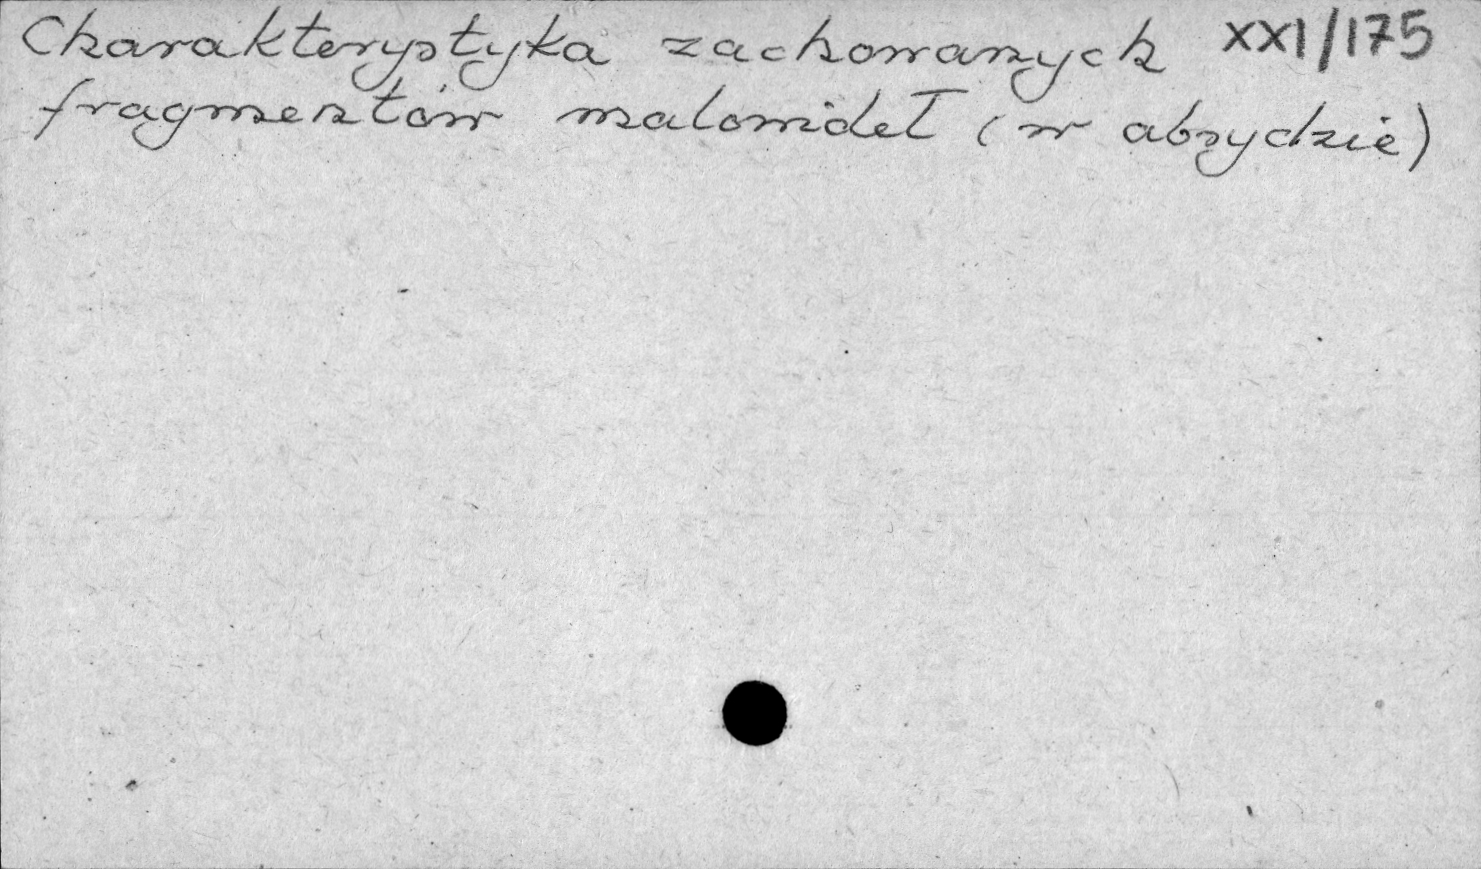 Charakterystyka zachowanych XXI/175
fragmentów malowideł (w absydzie)